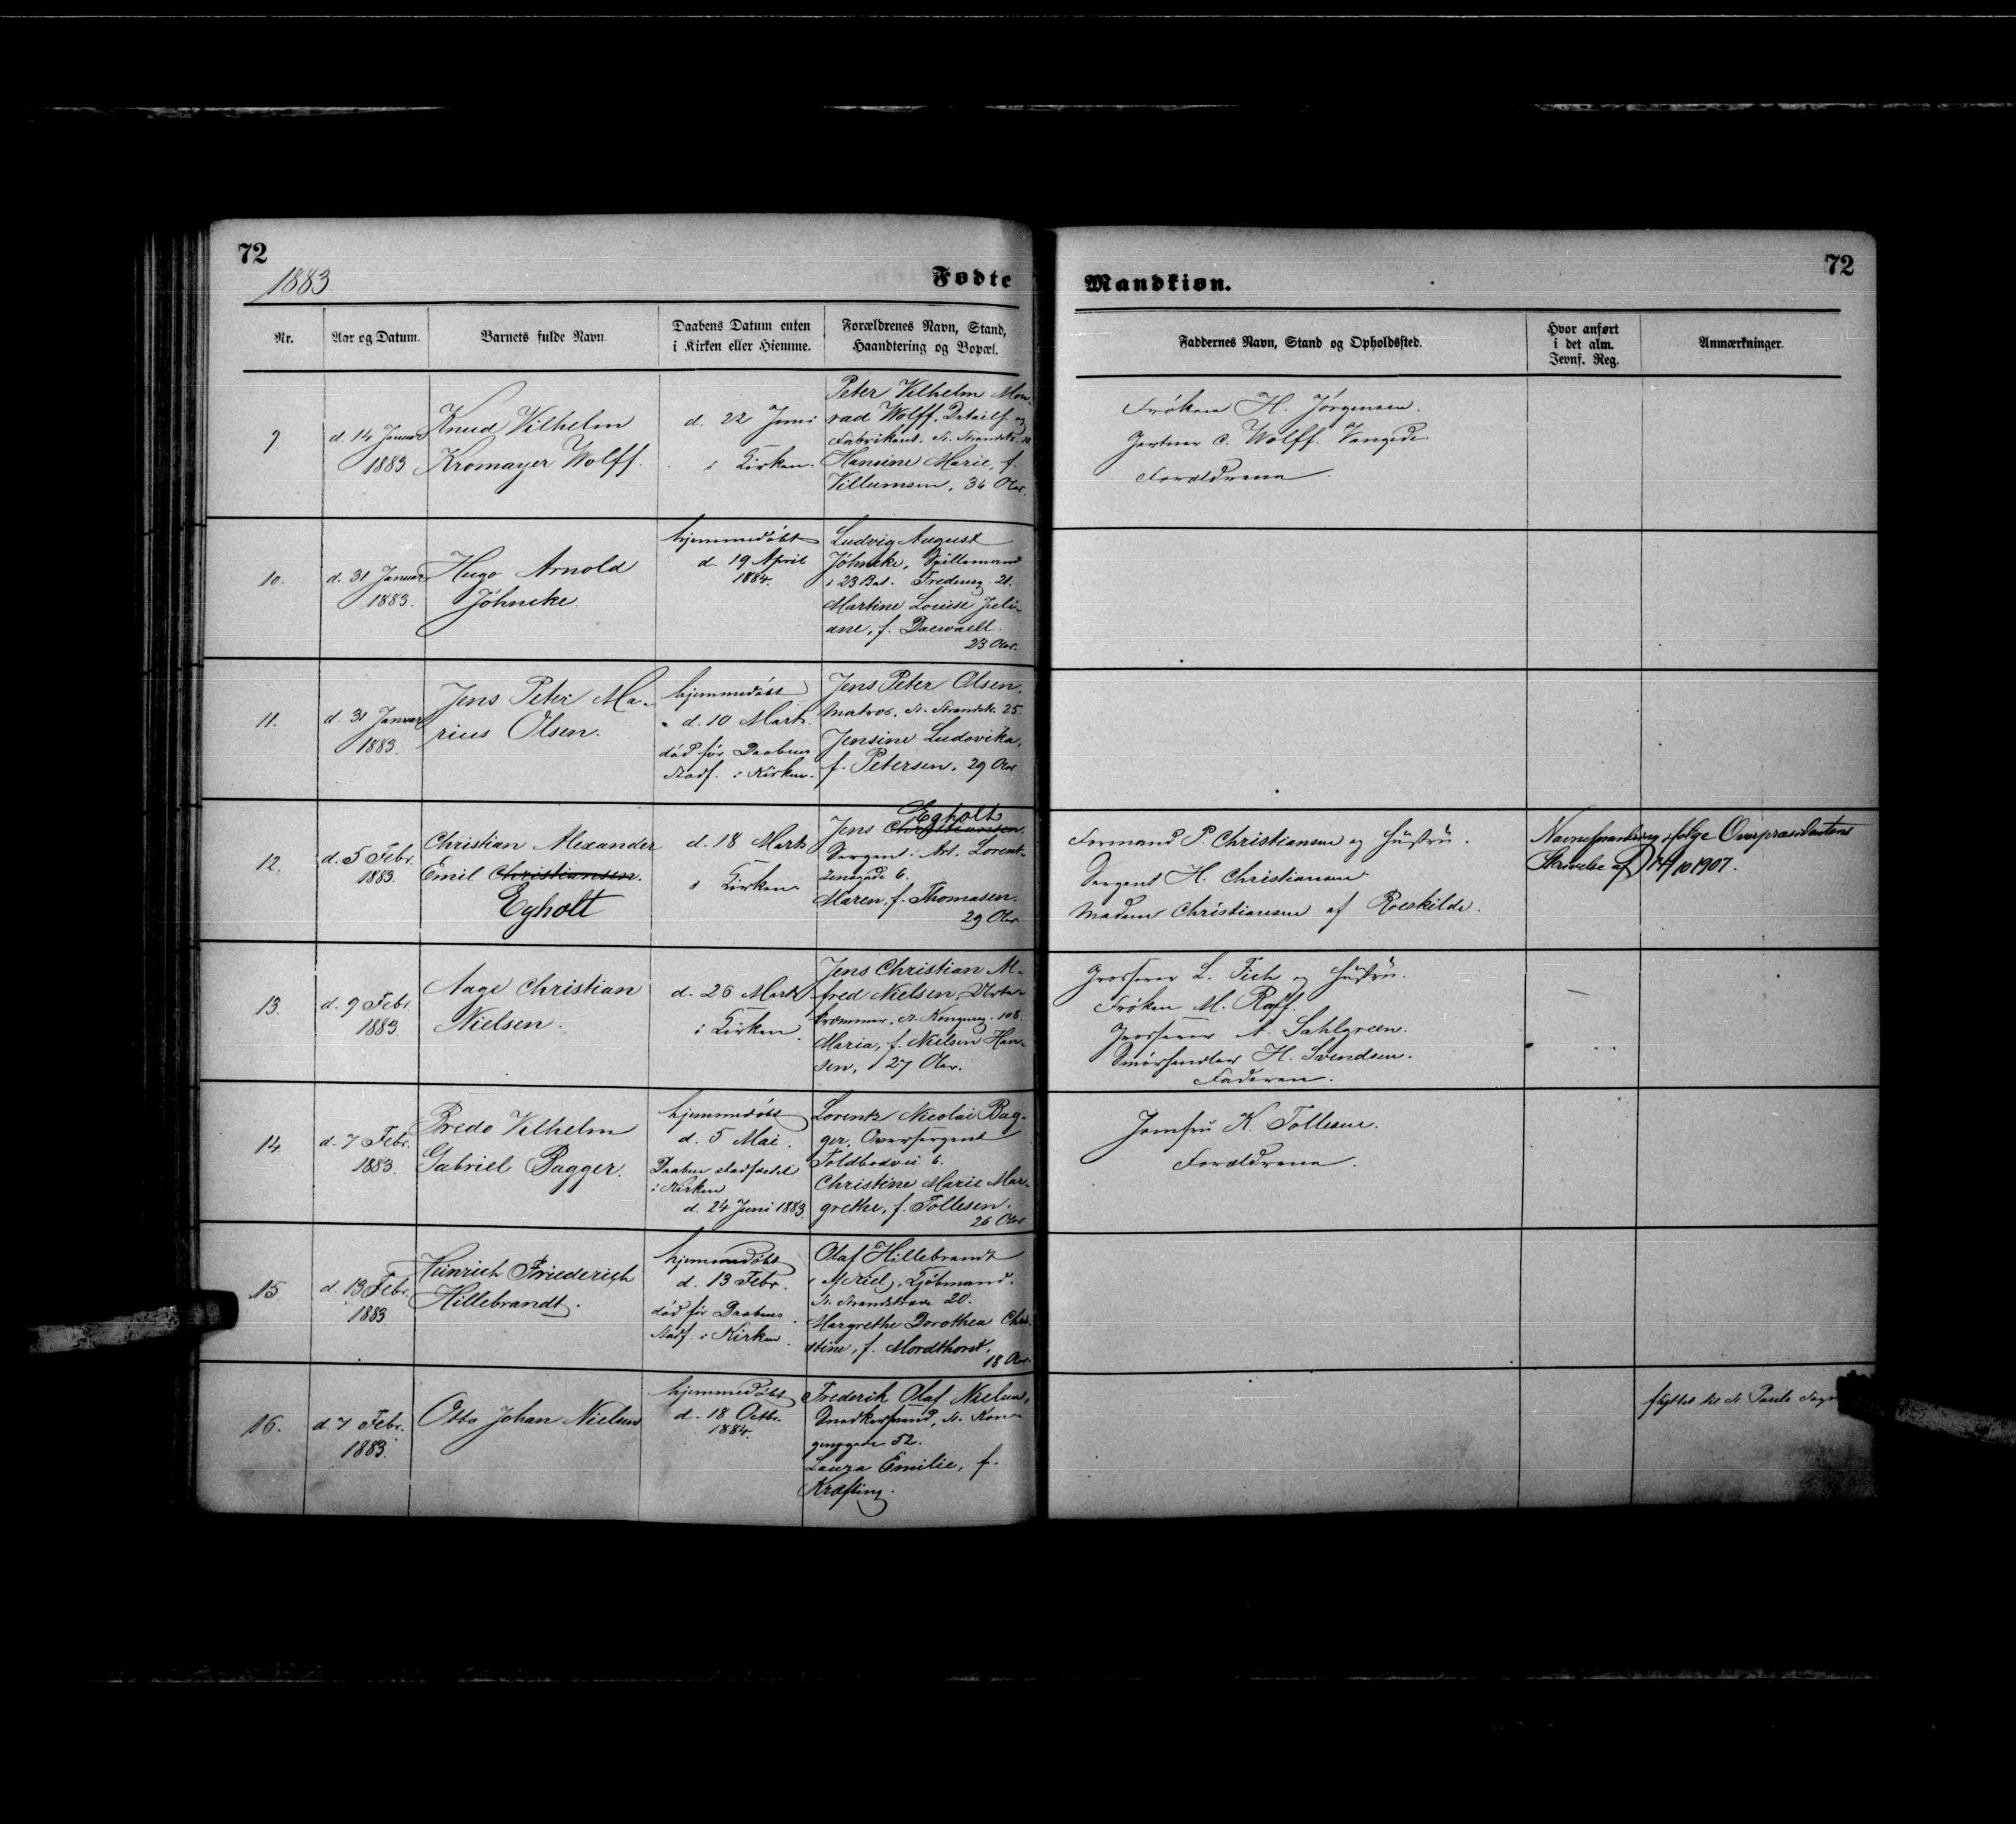 72
1883
Fødte
Nr.
Aar og Datum.
Barnets fulde Navn.
Daabens Datum enten
i Kirken eller Hiemme.
Forældrenes Navn, Stand,
Haandtering og Bopæl.
9.
d. 14 Januar
1883
Knud Vilhelm
Kromayer Wolff.
d. 22 Juni
i Kirken.
Peter Vilhelm Mon-
rad Wolff. Detailh. og
Fabrikant. St. Strandstr. 10
Hansine Marie, f.
Villumsen, 36 Aar.
10.
d. 31 Januar
1883.
Hugo Arnold
Jöhncke.
hjemmedöbt
d. 19 April
1884.
Ludvig August
Jöhncke, Spillemand
i 23 Bat. Fredensg. 21.
Martine Louise Juli-
ane, f.
23 Aar.
11.
d. 31 Januar
1883.
Jens Peter Ma-
rius Olsen.
hjemmedöbt
d. 10 Marts.
död för Daabens
Stadf. i Kirken.
Jens Peter Olsen,
Matros, St. Strandstr. 25.
Jensine Ludovika,
f. Petersen. 29 Aar
12.
d. 5 Febr.
1883.
Christian Alexander
Emil Christiansen.
Egholt
d. 18 Marts
i Kirken.
Egholt
Jens Christiansen.
Sergent i Art. Lorent-
zensgade 6.
Maren, f. Thomasen.
29 Aar
13.
d. 9 Febr.
1883
Aage Christian
Nielsen.
d. 26 Marts
i Kirken.
Jens Christian Al-
fred Nielsen, Urte-
kræmmer, St. Kongensg. 108.
Maria, f. Nielsen Han-
sen, 27 Aar.
14.
d. 7 Febr.
1883.
Predo Vilhelm
Gabriel Bagger.
hjemmedöbt
d. 5 Mai.
Daaben stadfæstet
i Kirken
d. 24 Juni 1883.
Lorentz Nicolai Bag-
ger, Oversergent
Toldbodvei 6.
Christine Marie Mar-
grethe, f. Tollesen.
26 Aar
15
d. 13 Febr.
1883
Heinrich Friederich
Hillebrandt.
hjemmedöbt
d. 13 Febr.
död för Daabens
Stadf. i Kirken.
Olaf Hillebrandt
Kjöbmand.
St. Strandstræde 20.
Margrethe Dorothea Chri-
stine, f. Mordthorst,
18 Aar.
16.
d. 7 Febr.
1883.
Otto Johan Nielsen
hjemmedöbt
d. 18 Octbr.
1884.
Frederik Olaf Nielsen,
Snedkersvend, St. Kon-
gensgade 52.
Laura Emilie, f.
Kræfting.
72
Mandkiøn.
Faddernes Navn, Stand og Opholdssted.
Hvor anført
i det alm.
Jevnf. Reg.
Anmærkninger.
Fröken H. Jörgensen.
Gartner C. Wolff. Vangede
Forældrene.
Formand P. Christiansen og Hustru.
Sergent H. Christiansen
Madam Christiansen af Roeskilde.
Navneforandring ifølge Overpræsidentens
Skrivelse af 10 1907.
Grosserer L. Fich og Hustru.
Fröken M. Raff.
Grosserer A. Sahlgreen.
Smörhandler H. Svendsen.
Faderen.
Jomfru K. Tollesen.
Forældrene.
flyttet til St. Pauls Sogn